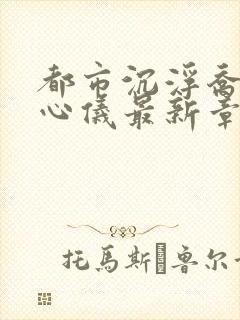 都市沉浮乔
心儀最新章
托馬斯·魯尔